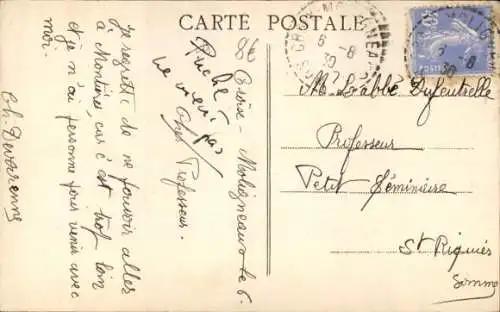 CARTE POSTALE
6
-8
30
Brise - Moligneaux le 6.
Cher Professeur.
Je regrette de ne pouvoir aller
à Montières, car c'est trop loin
et je n'ai personne pour venir avec
moi.
Ch. Devarenne
ne vient pas
M. L'abbé Dufeutrelle
Professeur
Petit Séminaire
St Riquier
Somme